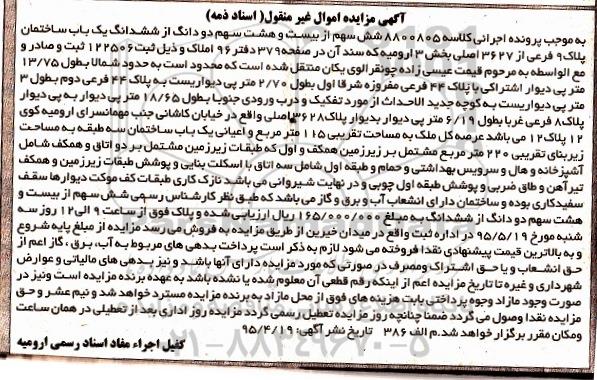 آگهی مزایده اموال غیر منقول( اسناد ذمه)
به موجب پرونده اجرائی کلاسه ۸۸۰۰۸۰۵ شش سهم از بیست و هشت سهم دو دانگ از ششدانگ یک باب ساختمان
پلاک ۹ فرعی از ۳۶۲۷ اصلی بخش ۳ ارومیه که سند آن در صفحه ۳۷۹ دفتر ۹۶ املاک و ذیل ثبت ۱۲۲۵۰۶ ثبت و صادر و
مع الواسطه به مرحوم قیمت عیسی زاده چونقرالوی یکان منتقل شده است که محدود است به حدود شمالا بطول ۱۳/۷۵
متر پی دیوار اشتراکی با پلاک ۴۴ فرعی مفروزه شرقا اول بطول ۲/۷۰ متر پی دیواریست به پلاک ۴۴ فرعی دوم بطول ۳
متر پی دیواریست به کوچه جدید الاحداث از مورد تفکیک و درب ورودی جنوبا بطول ۱۸/۶۵ متر پی دیوار به پی دیوار
پلاک ۸ فرعی غربا بطول ۶/۱۹ متر پی دیوار بدیوار پلاک ۳۶۲۸ اصلی واقع در خیابان کاشانی جنب مهمانسرای ارومیه کوی
۱۲ پلاک ۱۲ می باشد عرصه کل ملک به مساحت تقریبی ۱۱۵ متر مربع و اعیانی یک باب ساختمان سه طبقه به مساحت
زیربنای تقریبی ۲۲۰ متر مربع مشتمل بر زیرزمین همکف و اول که طبقات زیرزمین مشتمل بر دو اتاق و همکف شامل
آشپزخانه و هال و سرویس بهداشتی و حمام و طبقه اول شامل سه اتاق با اسکلت بنایی و پوشش طبقات زیرزمین و همکف
تیرآهن و طاق ضربی و پوشش طبقه اول چوبی و در نهایت شیروانی می باشد نازک کاری طبقات کف موکت دیوارها سقف
سفیدکاری بوده و ساختمان دارای انشعاب آب و برق و گاز می باشد که طبق نظر کارشناس رسمی شش سهم از بیست و
هشت سهم دو دانگ از ششدانگ به مبلغ ۱۶۵/۰۰۰/۰۰۰ ریال ارزیابی شده و پلاک فوق از ساعت ۹ الی ۱۲ روز سه
شنبه مورخ ۹۵/۵/۱۹ در اداره ثبت واقع در میدان خبرین از طریق مزایده به فروش می رسد مزایده از مبلغ پایه شروع
و به بالاترین قیمت پیشنهادی نقدا فروخته می شود لازم به ذکر است پرداخت بدهی های مربوط به آب، برق ، گاز اعم از
حق انشعاب و یا حق اشتراک و مصرف در صورتی که مورد مزایده دارای آنها باشد و نیز بدهی های مالیاتی و عوارض
شهرداری و غیره تا تاریخ مزایده اعم از اینکه رقم قطعی آن معلوم شده یا نشده باشد به عهده برنده مزایده است ونیز در
صورت وجود مازاد وجوه پرداختی بابت هزینه های فوق از محل مازاد به برنده مزایده مسترد خواهد شد و نیم عشر و حق
مزایده نقدا وصول می گردد ضمنا چنانچه روز مزایده تعطیل رسمی گردد مزایده روز اداری بعد از تعطیلی در همان ساعت
ومکان مقرر برگزار خواهد شد.م الف ۳۸۶ تاریخ نشر آگهی: ۹۵/۴/۱۹
کفیل اجراء مفاد اسناد رسمی ارومیه
۰۲۱-۸۸۳۴۹۶۷۰-۵